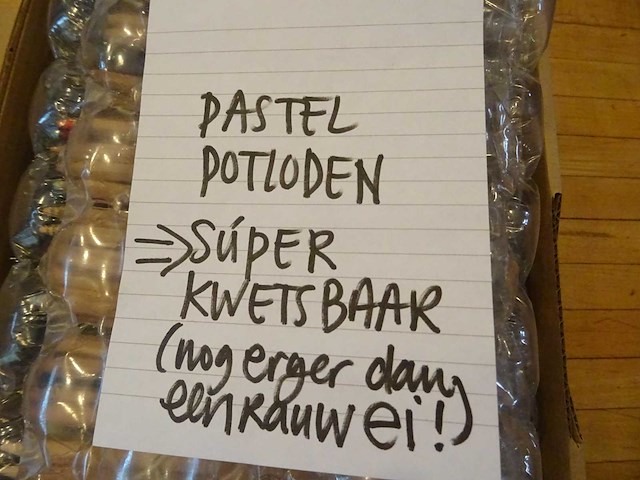 PASTEL
POTLODEN
⇒ SÚPER
KWETSBAAR
(nog erger dan
een rauw ei!)